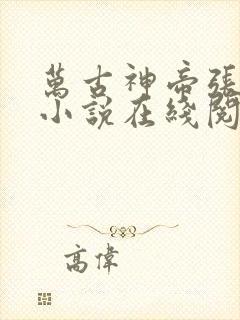 萬古神帝張
小說在綫閱
高偉